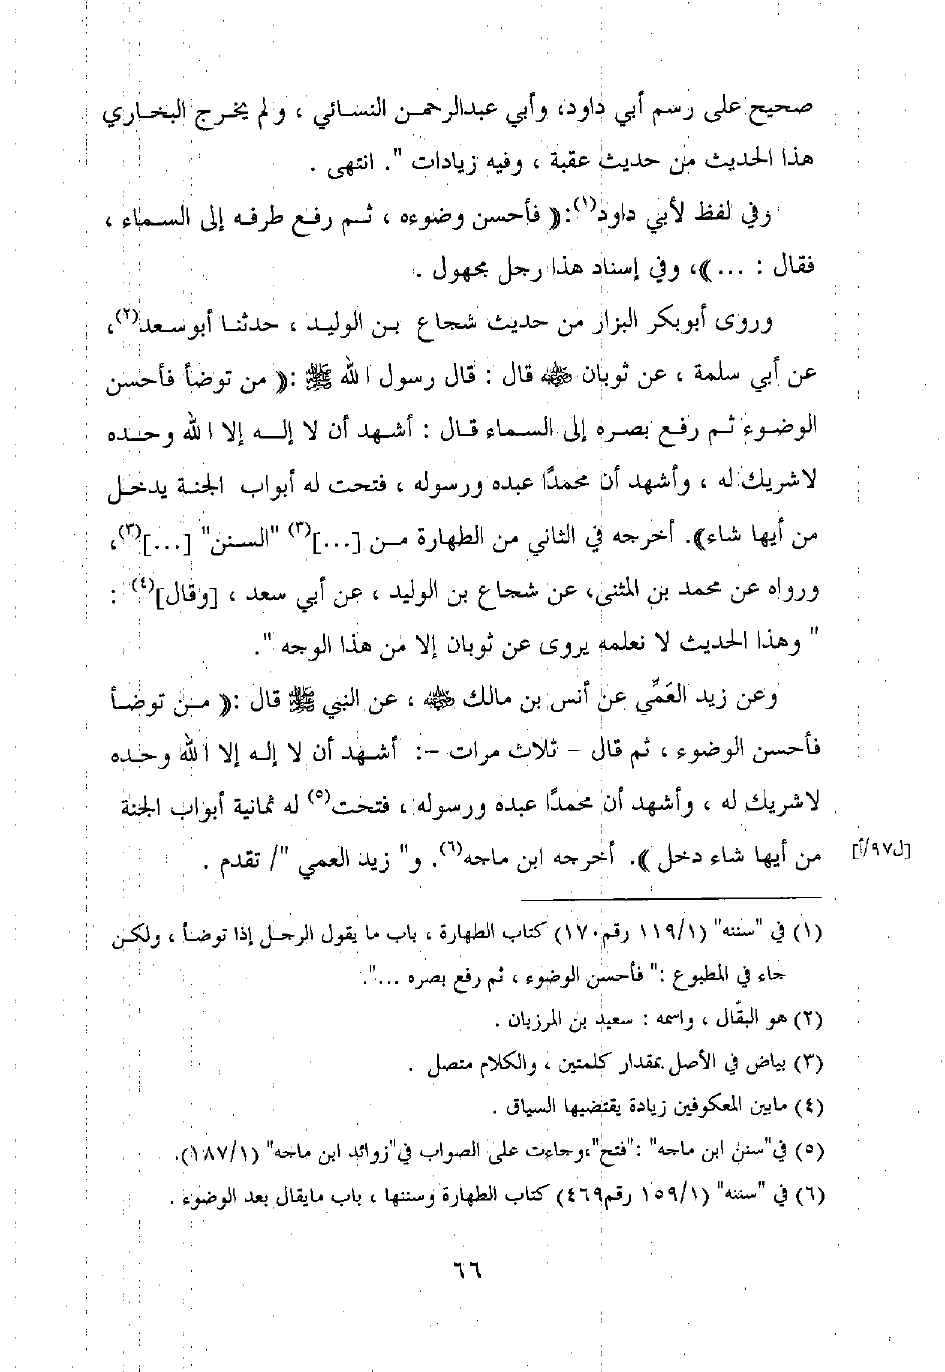 صحيح على رسم أبي داود، وأبي عبدالرحمن النسائي ، ولم يخرج البخاري
هذا الحديث من حديث عقبة ، وفيه زيادات ". انتهى .
وفي لفظ لأبي داود(١):﴿ فأحسن وضوءه ، ثم رفع طرفه إلى السماء ،
فقال : ...﴾، وفي إسناد هذا رجل مجهول .
وروى أبوبكر البزار من حديث شجاع بن الوليد ، حدثنا أبوسعد(٢)،
عن أبي سلمة ، عن ثوبان ﷺ قال : قال رسول الله ﷺ :﴿ من توضأ فأحسن
الوضوء ثم رفع بصره إلى السماء قال : أشهد أن لا إله إلا الله وحده
لاشريك له ، وأشهد أن محمدًا عبده ورسوله ، فتحت له أبواب الجنة يدخل
من أيها شاء﴾. أخرجه في الثاني من الطهارة من [...](٣) "السنن" [...](٣)،
ورواه عن محمد بن المثنى، عن شجاع بن الوليد ، عن أبي سعد ، [وقال](٤) :
" وهذا الحديث لا نعلمه يروى عن ثوبان إلا من هذا الوجه ".
وعن زيد العَمِّي عن أنس بن مالك ﷺ ، عن النبي ﷺ قال :﴿ من توضأ
فأحسن الوضوء ، ثم قال - ثلاث مرات -: أشهد أن لا إله إلا الله وحده
لاشريك له ، وأشهد أن محمدًا عبده ورسوله ، فتحت(٥) له ثمانية أبواب الجنة
من أيها شاء دخل ﴾. أخرجه ابن ماجه(٦). و" زيد العمي "/ تقدم .
[ل٩٧/أ]
(١) في "سننه" (١/١١٩ رقم١٧٠) كتاب الطهارة ، باب ما يقول الرجل إذا توضأ ، ولكن
جاء في المطبوع :" فأحسن الوضوء ، ثم رفع بصره ...".
(٢) هو البقّال ، واسمه : سعيد بن المرزبان .
(٣) بياض في الأصل بمقدار كلمتين ، والكلام متصل .
(٤) مابين المعكوفين زيادة يقتضيها السياق .
(٥) في"سنن ابن ماجه" :"فتح"،وجاءت على الصواب في"زوائد ابن ماجه" (١/١٨٧).
(٦) في "سننه" (١/١٥٩ رقم٤٦٩) كتاب الطهارة وسننها ، باب مايقال بعد الوضوء .
٦٦